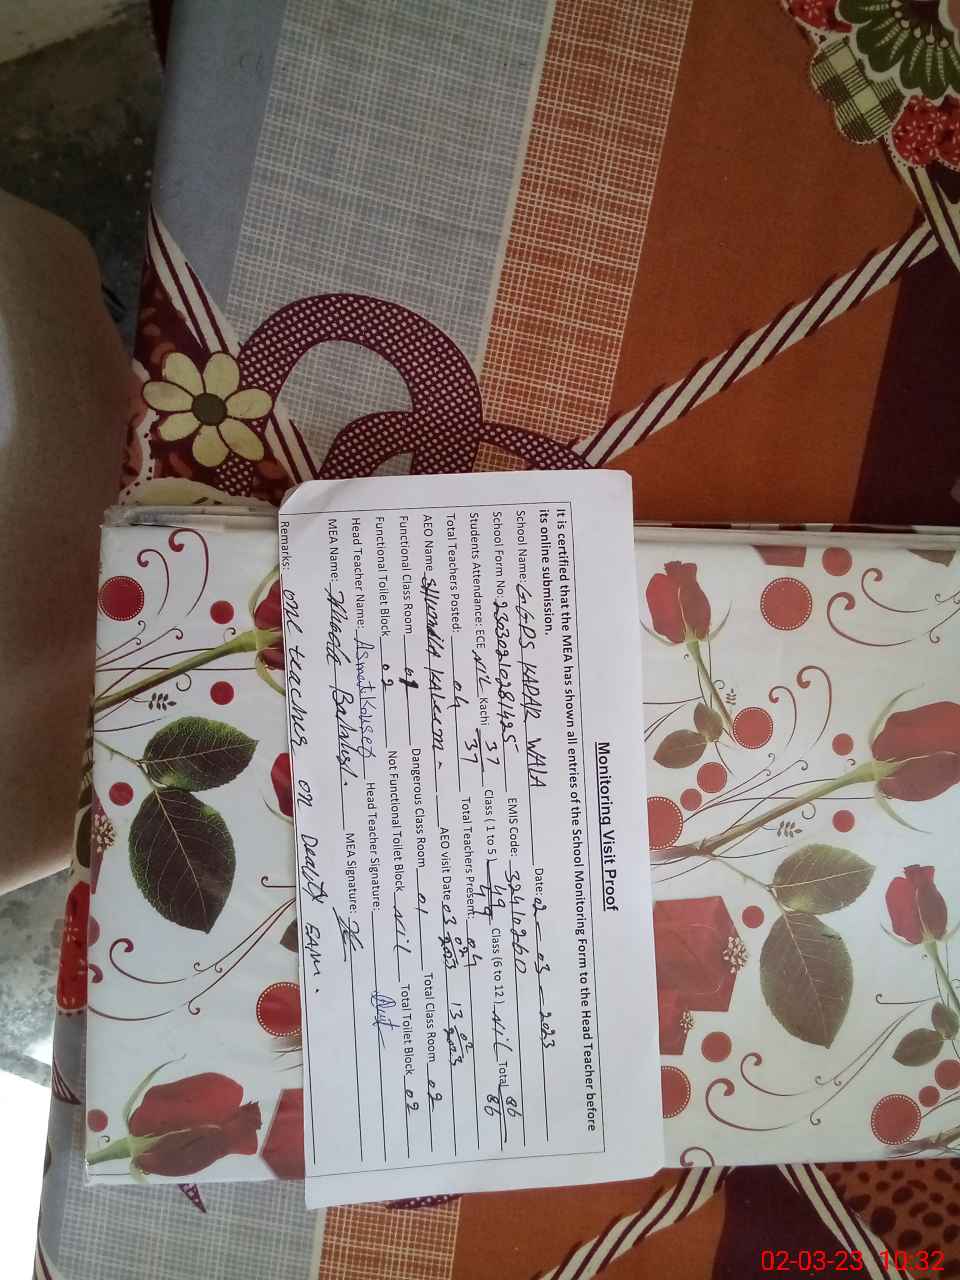 Monitoring Visit Proof
It is certified that the MEA has shown all entries of the School Monitoring Form to the Head Teacher before
its online submission.
School Name: GGPS KADAR WALA Date: 02-03-2023
School Form No: 23030210281425 EMIS Code: 32410260
Students Attendance: ECE Nil Kachi 37/37 Class (1 to 5) 49/49 Class (6 to 12) Nil Total 86/86
Total Teachers Posted: 04 Total Teachers Present: 04
AEO Name KALEEM. AEO visit Date 03-02-2023 13-02-2023
Functional Class Room Dangerous Class Room 01 Total Class Room 02
Functional Toilet Block 02 Not Functional Toilet Block Nil Total Toilet Block 02
Head Teacher Name: Head Teacher Signature:
MEA Name: MEA Signature:
Remarks: one teacher on
02-03-23 10:32